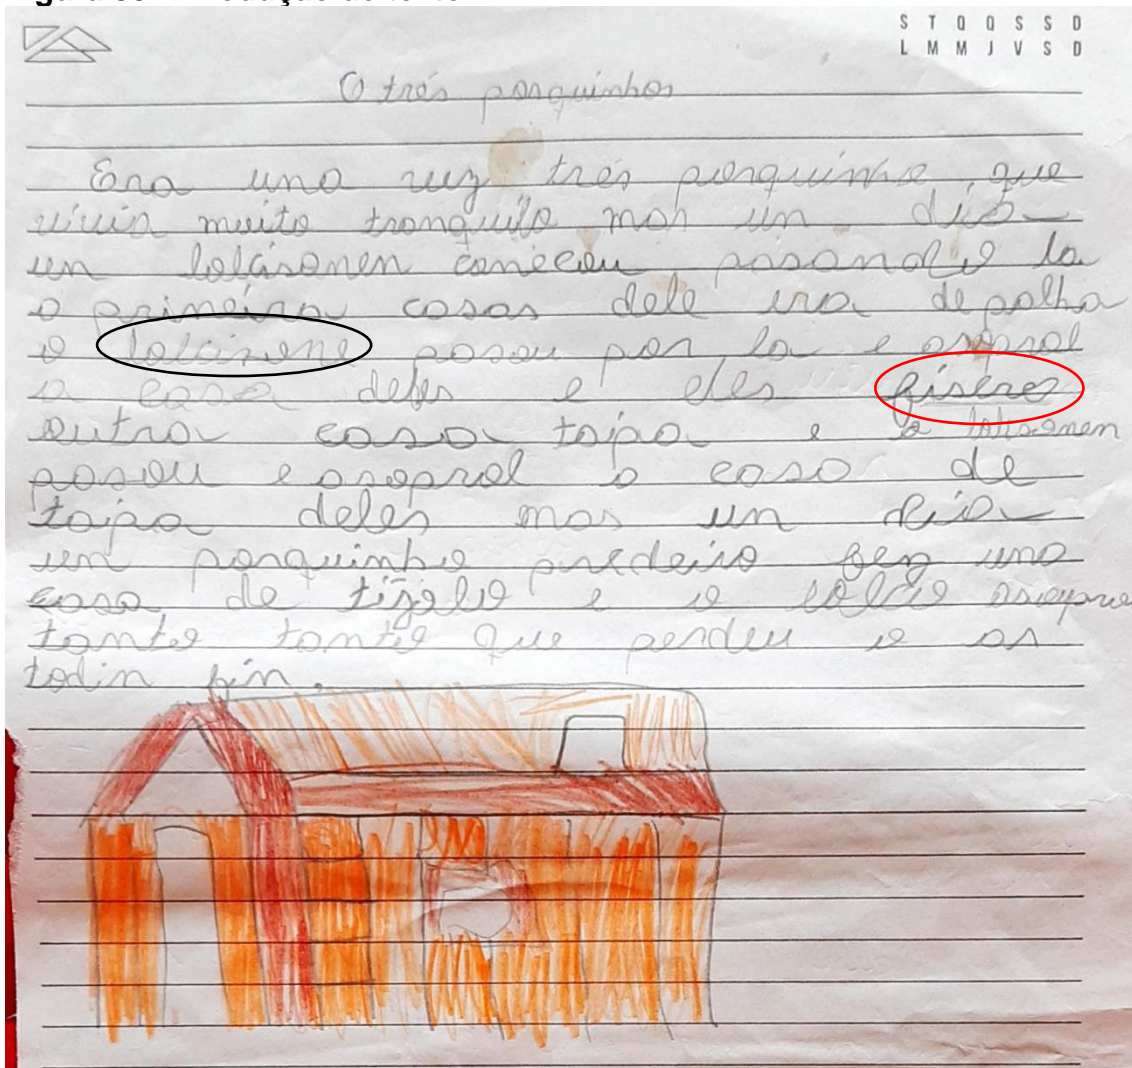 S T Q Q S S D
L M M J V S D
O trés porquinhos
Era una vez três porquinho que
vivia muito tranquilo mas un dia
un lolcisomen comeceu pasando la
a primeira casas dele era de palha
o lolcisone pasou por la e asopral
a casa deles e eles fiseres
outra casa taipa e o
pasou e asopral a casa de
taipa deles mas un dia
un porquinho predeiro fez una
casa de tigolo e o
tanto tanto que perdeu e os
todin fin.